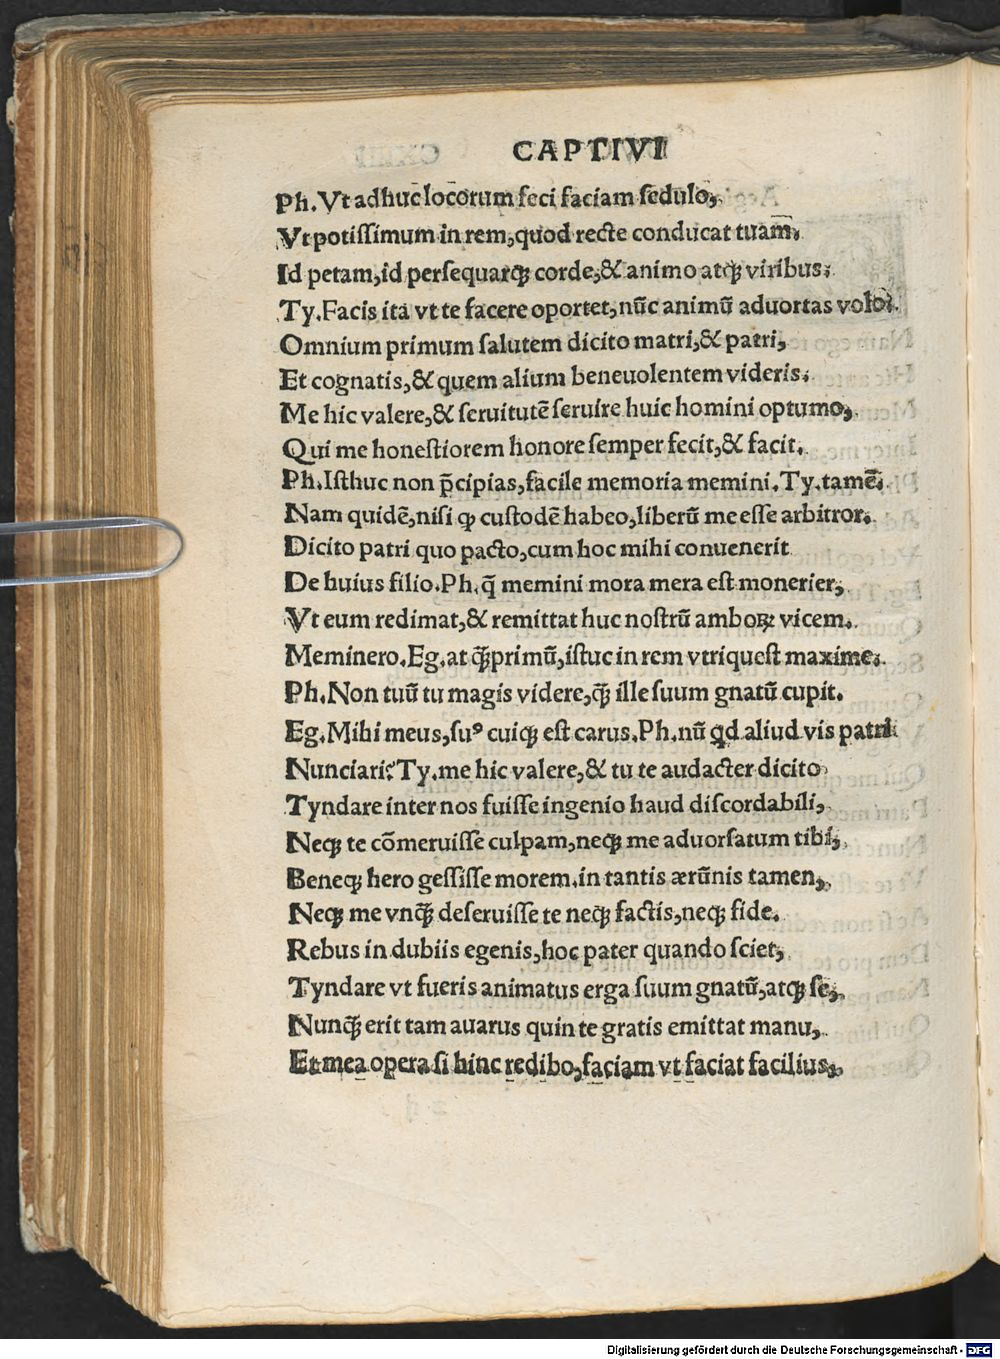 CAPTIVI
Ph.Vt adhuc locorum feci faciam ſedulo,
Vt potiſſimum in rem,quod recte conducat tuam,
Id petam,id perſequarq; corde,& animo atq; viribus.
Ty.Facis ita vt te facere oportet,nūc animū aduortas volo.
Omnium primum ſalutem dicito matri,& patri,
Et cognatis,& quem alium beneuolentem videris.
Me hic valere,& ſeruitutē ſeruire huic homini optumo,
Qui me honeſtiorem honore ſemper fecit,& facit.
Ph.Iſthuc non p̄cipias,facile memoria memini.Ty.tamē.
Nam quidē,niſi ꝙ cuſtodē habeo,liberū me eſſe arbitror.
Dicito patri quo pacto,cum hoc mihi conuenerit
De huius filio.Ph.q̄ memini mora mera eſt monerier,
Vt eum redimat,& remittat huc noſtrū amboꝝ vicem.
Meminero.Eg.at q̄ꝫprimū,iſtuc in rem vtriqueſt maxime.
Ph.Non tuū tu magis videre,q̄ꝫ ille ſuum gnatū cupit.
Eg.Mihi meus,ſuꝰ cuiq; eſt carus.Ph.nū qd aliud vis patri
Nunciari?Ty.me hic valere,& tu te audacter dicito
Tyndare inter nos fuiſſe ingenio haud diſcordabili,
Neq; te cōmeruiſſe culpam,neq; me aduorſatum tibi,
Beneq; hero geſſiſſe morem.in tantis ærūnis tamen,
Neq; me vnq̄ꝫ deſeruiſſe te neq; factis,neq; fide.
Rebus in dubiis egenis,hoc pater quando ſciet,
Tyndare vt fueris animatus erga ſuum gnatū,atq; ſe,
Nunq̄ꝫ erit tam auarus quin te gratis emittat manu,
Et mea opera ſi hinc redibo,faciam vt faciat facilius,
Digitalisierung gefördert durch die Deutsche Forschungsgemeinschaft - DFG